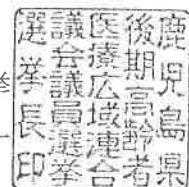 挙
鹿児島県
後期高齢者
医療広域連合
議会議員選挙
選挙長印